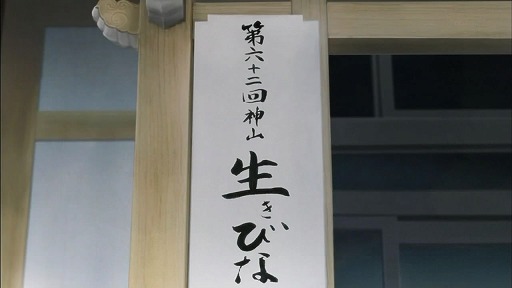 第六十二回神山
生きびな